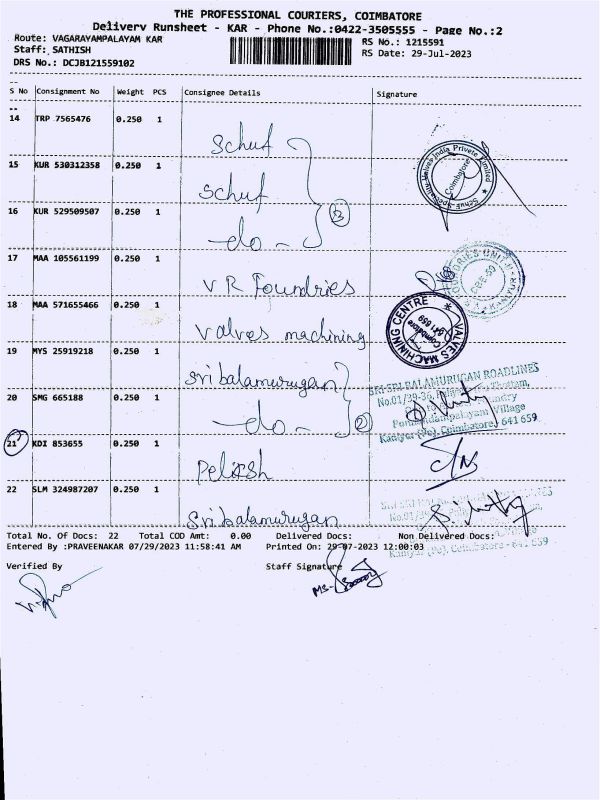 THE PROFESSIONAL COURIERS, COIMBATORE
Delivery Runsheet - KAR - Phone No.:0422-3505555 - Page No.:2
Route: VAGARAYAMPALAYAM KAR
RS No.: 1215591
Staff: SATHISH
RS Date: 29-Jul-2023
DRS No.: DCJB121559102
S No Consignment No Weight PCS Consignee Details Signature
14 TRP 7565476 0.250 1 Schuf
15 KUR 530312358 0.250 1 Schuf
16 KUR 529509507 0.250 1 -do- 3
Schuf Speciality Valves India Private Limited
Coimbatore
17 MAA 105561199 0.250 1 VR Foundries
18 MAA 571655466 0.250 1 Valves machining
VALVES MACHINING CENTRE
Coimbatore
641 659
19 MYS 25919218 0.250 1 Sri balamurugan
20 SMG 665188 0.250 1 -do- 2
SRI SRI BALAMURUGAN ROADLINES
No.01/39-36,
Village
Kaniyur (Po), Coimbatore, 641 659
21 KDI 853655 0.250 1 Peliksh
22 SLM 324987207 0.250 1 Sri balamurugan
Kaniyur (Po), Coimbatore - 641 659
Total No. Of Docs: 22 Total COD Amt: 0.00 Delivered Docs: Non Delivered Docs:
Entered By :PRAVEENAKAR 07/29/2023 11:58:41 AM Printed On: 29-07-2023 12:00:03
Verified By Staff Signature